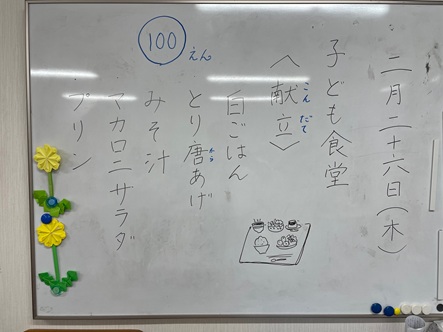 二月二十六日(木)
子ども食堂
〈献立〉
こん だて
白ごはん
とり唐あげ
から
みそ汁
マカロニサラダ
プリン
100えん